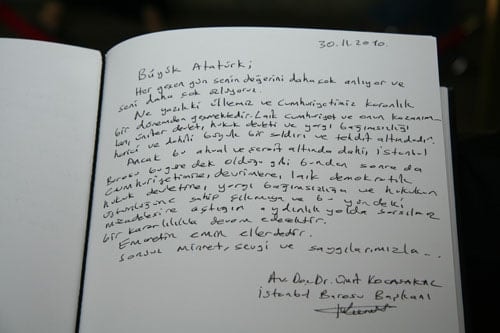 30.11.2010.
Büyük Atatürk;
Her geçen gün senin değerini daha çok anlıyor ve
seni daha çok özlüyoruz.
Ne yazıkki ülkemiz ve Cumhuriyetimiz karanlık
bir dönemden geçmektedir. Laik cumhuriyet ve onun kazanım-
ları, üniter devlet, hukuk devleti ve yargı bağımsızlığı
harici ve dahili büyük bir saldırı ve tehdit altındadır.
Ancak bu ahval ve şerait altında dahi, İstanbul
Barosu bugüne dek olduğu gibi bundan sonra da
cumhuriyetimize, devrimlere, laik demokratik
hukuk devletine, yargı bağımsızlığına ve hukukun
üstünlüğüne sahip çıkmaya ve bu yöndeki
mücadelesine açtığın aydınlık yolda sarsılmaz
bir kararlılıkla devam edecektir.
Emanetin emin ellerdedir.
Sonsuz minnet, sevgi ve saygılarımızla...
Av. Doç. Dr. Ümit KOCASAKAL
İstanbul Barosu Başkanı